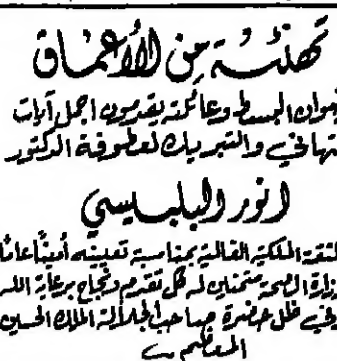 تهنئة من الأعماق
نهوان البسط وعائلته يقدمون اجمل آيات
التهاني والتبريك لعطوفة الدكتور
انور البلبيسي
الثقة الملكية الغالية بمناسبة تعيينه أميناً عاماً
لوزارة الصحة متمنين له كل تقدم ونجاح برعاية الله
وفي ظل حضرة صاحب الجلالة الملك الحسين
المعظم